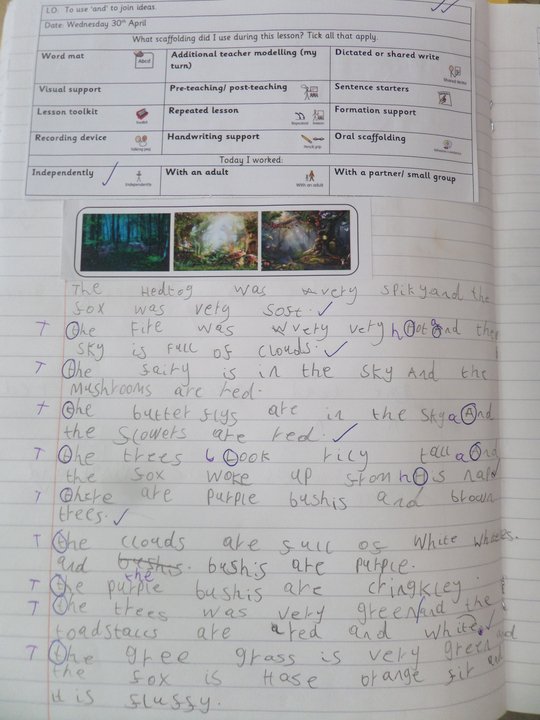 LO: To use 'and' to join ideas.
Date: Wednesday 30th April
What scaffolding did I use during this lesson? Tick all that apply.
Word mat
Abcd
Additional teacher modelling (my turn)
Dictated or shared write
Shared Write
Visual support
Pre-teaching/ post-teaching
Sentence starters
Lesson toolkit
Toolkit
Repeated lesson
Repeated lesson
Formation support
Recording device
Talking peg
Handwriting support
Pencil grip
Oral scaffolding
Today I worked:
Independently
Independently
With an adult
With an adult
With a partner/ small group
The Hedtog was very spiky and the
fox was very soft.
T the fire was very very h Hot a And the
sky is full of clouds.
T the fairy is in the sky And the
mushrooms are red.
T the butter flys are in the sky a And
the flowers are red.
T the trees l Look rily tall a And
the fox woke up from h His nap
T there are purple bushis and brown
trees.
T the clouds are full of white
and bushis. bushis are purple.
the
T the purple bushis are cringkley.
T the trees was very green and the
toadstacls are red and white.
T the gree grass is very green and
the fox is Hase orange fir and
it is fluffy.